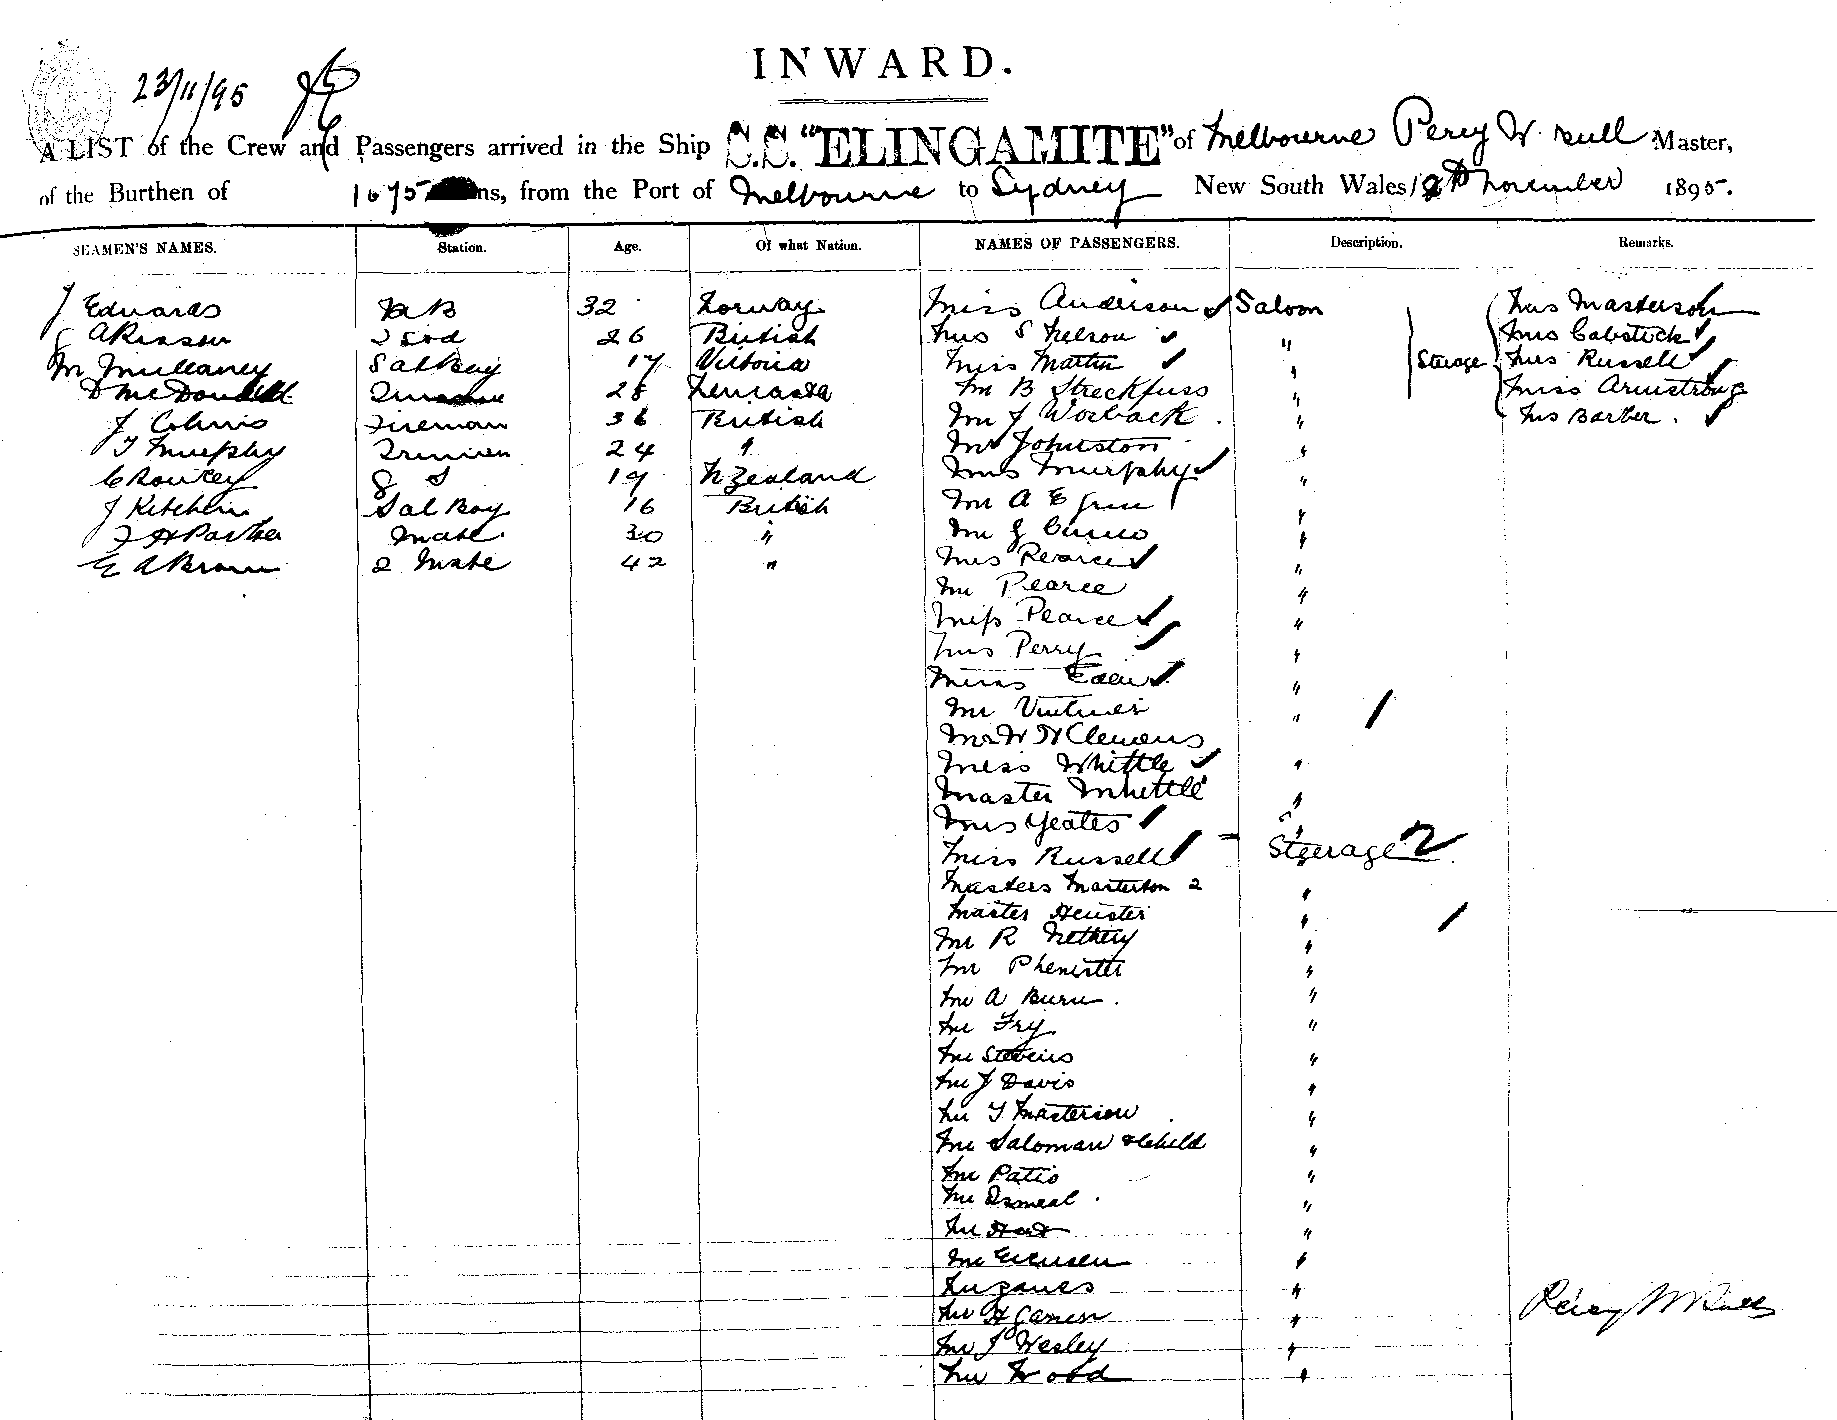 INWARD.
23/11/95
A LIST of the Crew and Passengers arrived in the Ship S.S. "ELINGAMITE" of Melbourne Percy W. Bull Master,
of the Burthen of 1675 ns, from the Port of Melbourne to Sydney New South Wales, November 1895.
SEAMEN'S NAMES. Station. Age. Of what Nation. NAMES OF PASSENGERS. Description. Remarks.
J Edwards AB 32 Norway Miss Anderson Saloon Mrs Masterson
26 British Mrs S Nelson " Mrs Cabstick
M Mullaney Sal Boy 17 Victoria Miss Martin " Steerage Mrs Russell
D McDonald 28 Mr B Streckfuss " Miss Armstrong
J Collins Fireman 36 British Mr J Worback " Mrs Barber.
T Murphy Trimmer 24 " Mr Johnston "
C Routley 19 N Zealand Mrs Murphy "
J Kitchin Sal Boy 16 British Mr A E "
Parker Mate 30 " Mr "
E A Brown 2 Mate 42 " Mrs Pearce "
Mr Pearce "
Miss Pearce "
Mrs Perry "
Miss "
Mr "
Mr W H Clemens
Miss Whittle "
Master Whittle "
Mrs Yeates "
Miss Russell - Steerage 2
Masters Masterson 2 "
Master "
Mr R Nethery "
Mr "
Mr A Burn. "
Mr Fry "
Mr Stevens "
Mr J Davis "
Mr T Masterson "
Mr Saloman & Child "
Mr Patio "
Mr "
Mr "
Mr "
Mr "
Mr H "
Percy W Bull
Mr J Wesley "
Mr Wood "